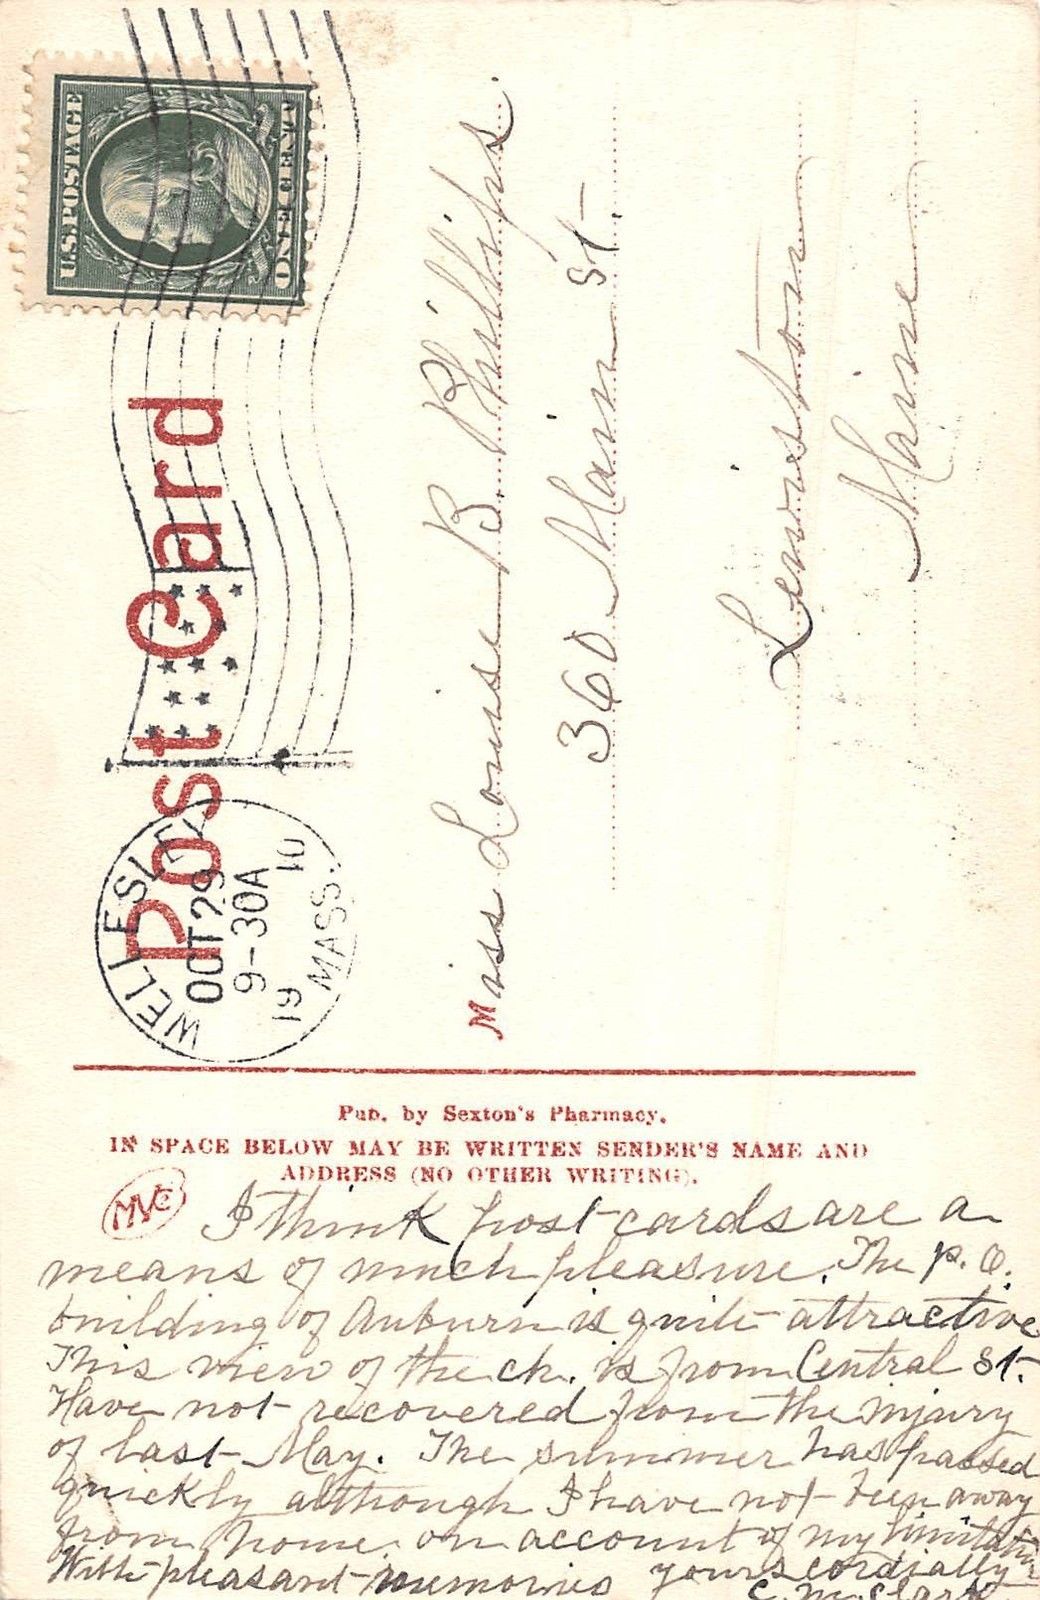 U.S. POSTAGE
ONE CENT
Post Card
WELLESLEY
OCT 29
9-30A
19 10
MASS.
Miss Louise B. Phillips
360 Main St
Lewiston
Maine
Pub. by Sexton's Pharmacy.
IN SPACE BELOW MAY BE WRITTEN SENDER'S NAME AND
ADDRESS (NO OTHER WRITING).
MVC
I think post cards are a
means of much pleasure. The P. O.
building of Auburn is quite attractive
This view of the ch. is from Central St.
Have not recovered from the injury
of last May. The summer has passed
quickly although I have not been away
from home on account of my limitation
With pleasant memories yours cordially
C. M. Clark